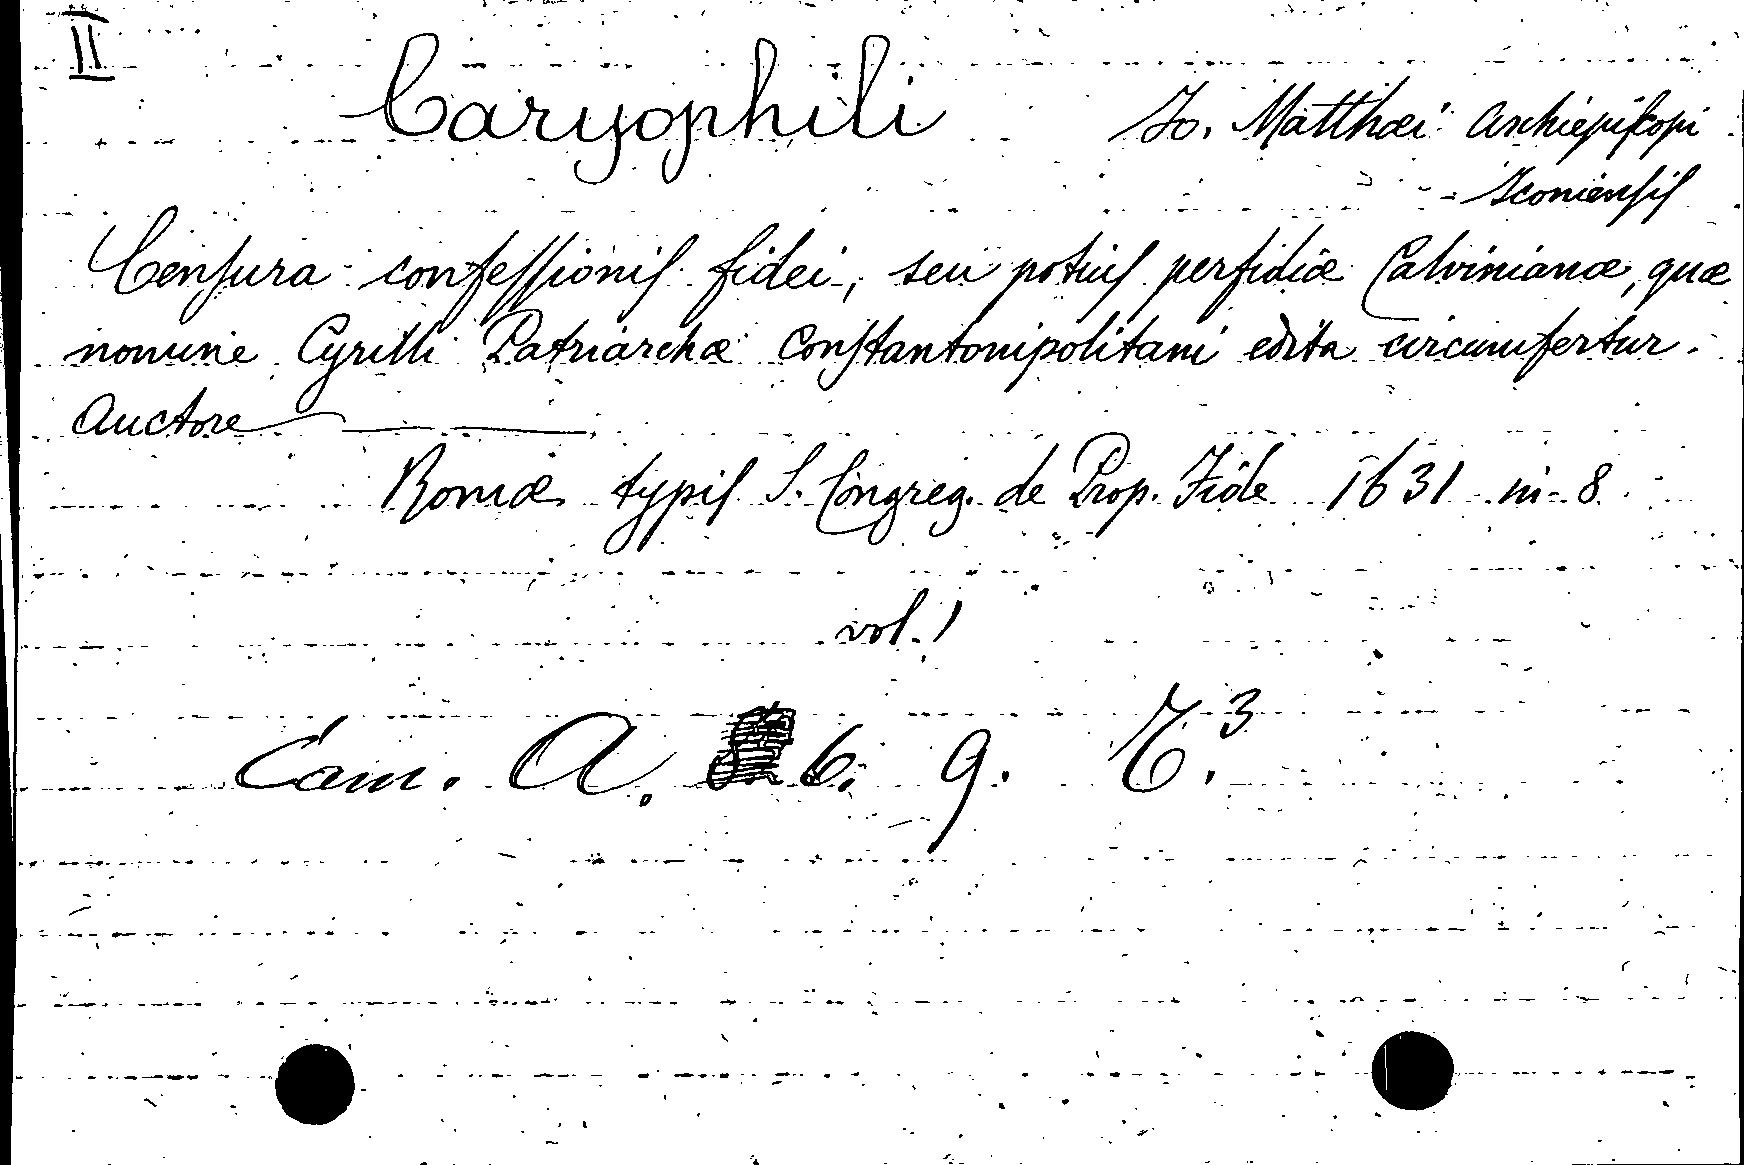 II
Caryophili Jo. Matthæi Archiepiſcopi
Iconienſiſ
Cenſura confeſſioniſ fidei, seu potiuſ perfidiæ Calvinianæ, quæ
nomine Cyrilli Patriarchæ Conſtantonipolitani edita circumfertur.
Auctore
Romæ typiſ S. Congreg. de Prop. Fide 1631 in 8
vol. 1
Cam. A. 6. 9.